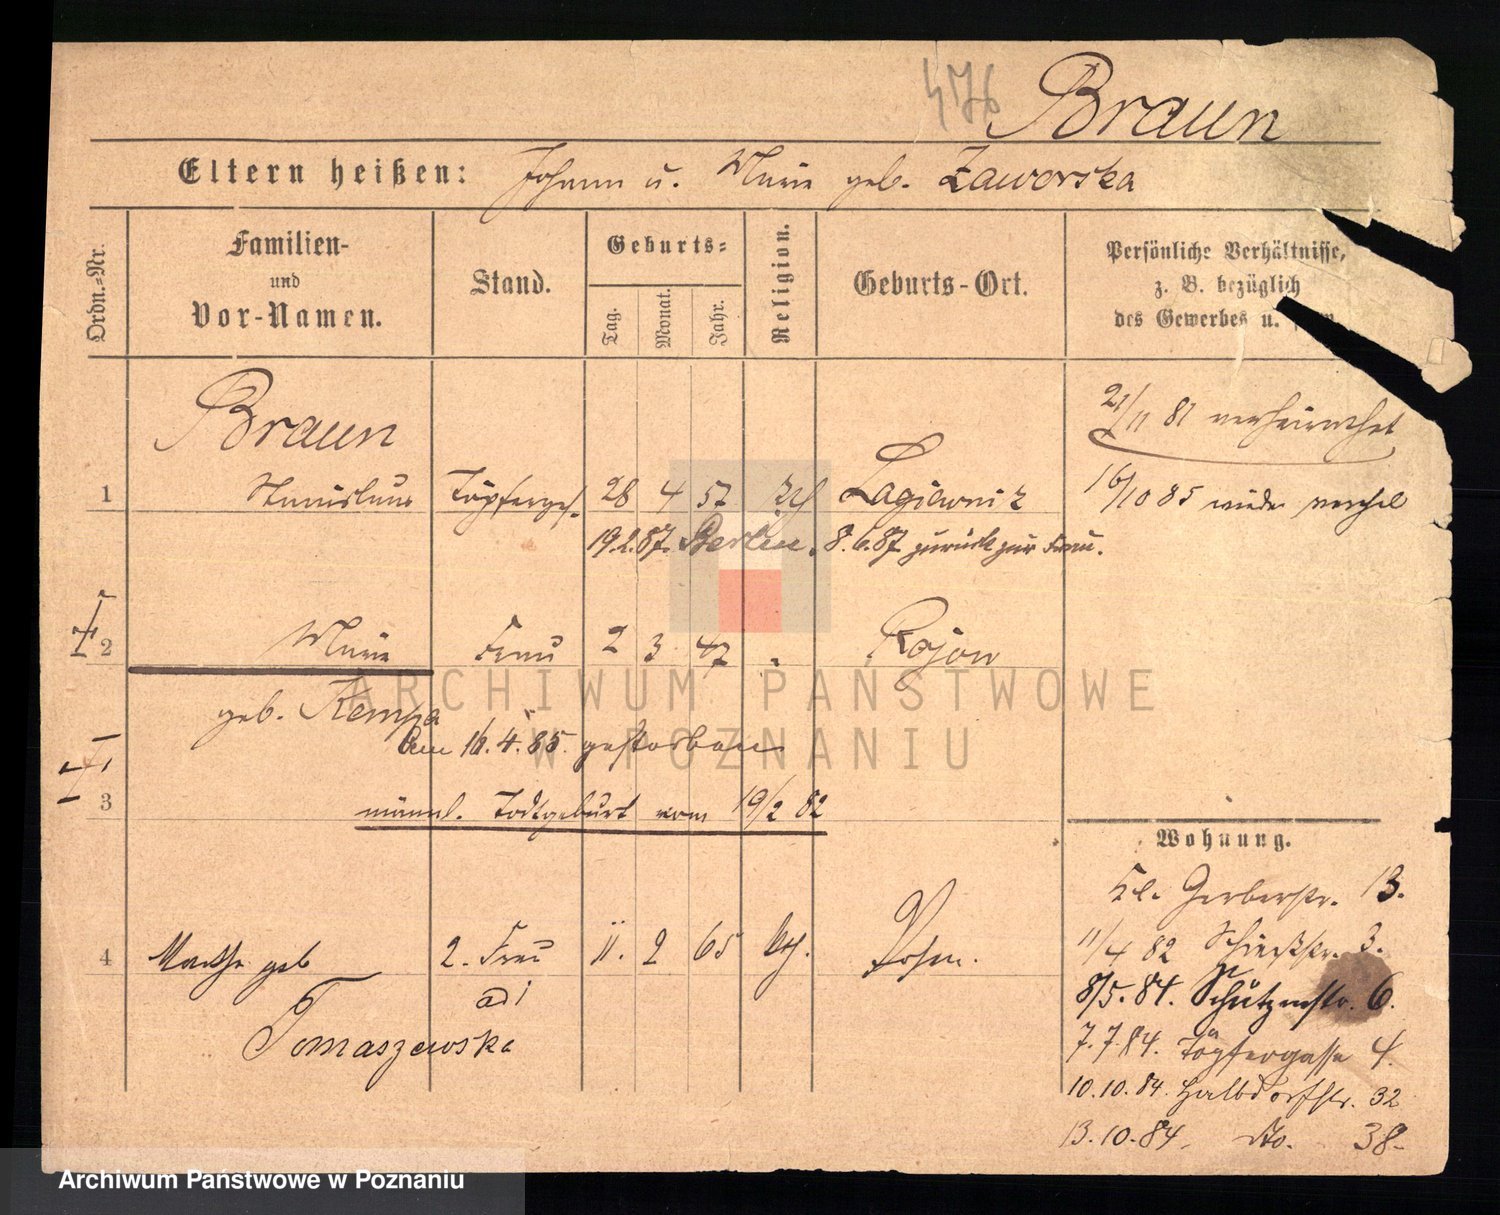 4176 Braun
Eltern heißen: Johann u. Marie geb. Zaworska
Ordn.-Nr.
Familien-
und
Vor-Namen.
Stand.
Geburts-
Tag.
Monat.
Jahr.
Religion.
Geburts-Ort.
Persönliche Verhältnisse,
z. B. bezüglich
des Gewerbes u.
Braun
21/11 81 verheirathet
1 Stanislaus Töpferges. 28 4 57 Lagiewnik 16/10 85 wieder
19.2.87. Berlin. 8.6.87 zurück zur Frau.
2 Marie Frau 2 3 47 " Rojow
geb. Kempa
Am 16.4.85. gestorben
3 männl. Todtgeburt vom 19/2 82
Wohnung.
Kl. Gerberstr. 13.
4 Marthe geb 2. Frau 11. 2 65 kth. Posen.
11/4 82 Schießstr. 3.
adi
8/5. 84. Schützenstr. 6.
Tomaszewska
7.7.84. Töpfergasse 4.
10.10.84. Halbdorfstr. 32
13.10.84. dto. 38-
ARCHIWUM PAŃSTWOWE
W POZNANIU
Archiwum Państwowe w Poznaniu